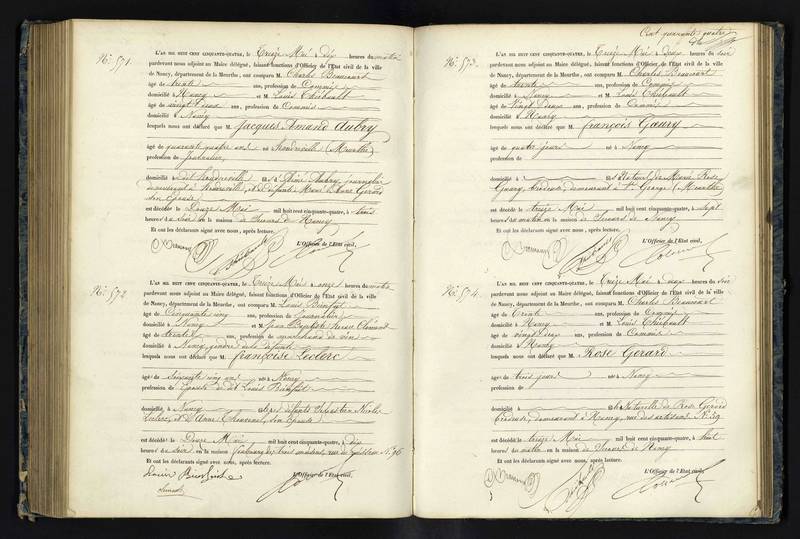 No. 571.
L'AN MIL HUIT CENT CINQUANTE-QUATRE, le Treize Mai à dix heures du matin
pardevant nous adjoint au Maire délégué, faisant fonctions d'Officier de l'Etat civil de la ville
de Nancy, département de la Meurthe, ont comparu M. Charles
âgé de trente ans, profession de Commis
domicilié à Nancy et M. Louis Thiébault
âgé de vingt deux ans, profession de Commis
domicilié à Nancy
lesquels nous ont déclaré que M. Jacques Amand Aubry
âgé de quarante quatre ans né à (Meurthe)
profession de journalier
domicilié à fils d' Aubry, journalier
demeurant à et de défunte Marie Anne
son épouse
est décédé le Douze Mai mil huit cent cinquante-quatre, à trois
heures du soir en la maison de Secours de Nancy
Et ont les déclarants signé avec nous, après lecture.
L'Officier de l'Etat civil,
No. 572
L'AN MIL HUIT CENT CINQUANTE-QUATRE, le Treize Mai à onze heures du matin
pardevant nous adjoint au Maire délégué, faisant fonctions d'Officier de l'Etat civil de la ville
de Nancy, département de la Meurthe, ont comparu M. Louis
âgé de Cinquante cinq ans, profession de Journalier
domicilié à Nancy et M. Jean Baptiste
âgé de trente ans, profession de marchand de vin
domicilié à Nancy, gendre de la défunte
lesquels nous ont déclaré que M. Françoise Leclerc
âgée de soixante cinq ans née à Nancy
profession de Epouse de dit Louis
domiciliée à Nancy fille des défunts Sébastien Nicolas
Leclerc, et d'Anne son épouse
est décédée le Douze Mai mil huit cent cinquante-quatre, à dix
heures du soir en la maison faubourg des trois maisons, rue
Et ont les déclarants signé avec nous, après lecture.
L'Officier de l'Etat civil,
Cent quarante quatre
No. 573.
L'AN MIL HUIT CENT CINQUANTE-QUATRE, le Treize Mai à deux heures du soir
pardevant nous adjoint au Maire délégué, faisant fonctions d'Officier de l'Etat civil de la ville
de Nancy, département de la Meurthe, ont comparu M. Charles
âgé de trente ans, profession de Commis
domicilié à Nancy et M. Louis Thiébault
âgé de Vingt Deux ans, profession de Commis
domicilié à Nancy
lesquels nous ont déclaré que M. François Gaury
âgé de quatre jours né à Nancy
profession de
domicilié à fils Naturel de Marie Rose
Gaury, brodeuse demeurant à St George (Meurthe)
est décédé le treize Mai mil huit cent cinquante-quatre, à sept
heures du matin en la maison de Secours de Nancy
Et ont les déclarants signé avec nous, après lecture.
L'Officier de l'Etat civil,
No. 574.
L'AN MIL HUIT CENT CINQUANTE-QUATRE, le Treize Mai à deux heures du soir
pardevant nous adjoint au Maire délégué, faisant fonctions d'Officier de l'Etat civil de la ville
de Nancy, département de la Meurthe, ont comparu M. Charles
âgé de trente ans, profession de Commis
domicilié à Nancy et M. Louis Thiébault
âgé de vingt deux ans, profession de Commis
domicilié à Nancy
lesquels nous ont déclaré que M. Rose Gerard
âgée de trois jours née à Nancy
profession de
domiciliée à fille Naturelle de Rose Gerard
brodeuse, demeurant à Nancy, rue des artisans
est décédée le treize Mai mil huit cent cinquante-quatre, à huit
heures du matin en la maison de Secours de Nancy
Et ont les déclarants signé avec nous, après lecture.
L'Officier de l'Etat civil,